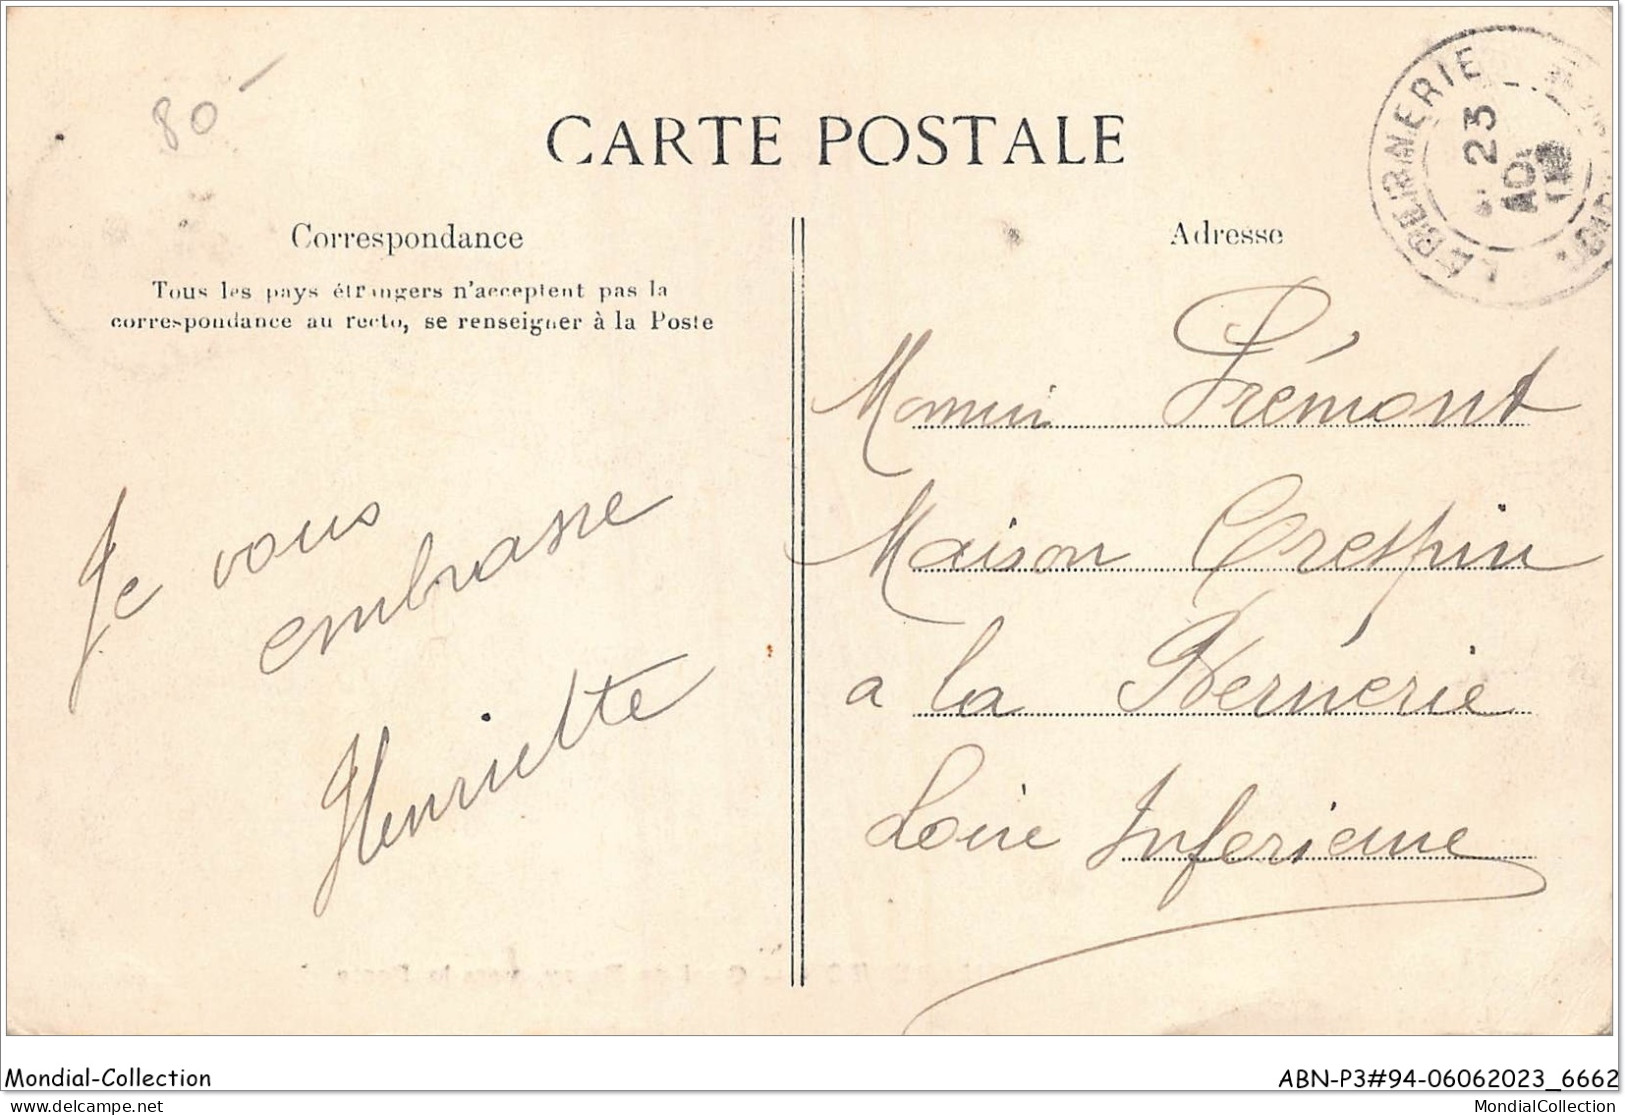 80-
CARTE POSTALE
LA BERNERIE
23
Correspondance
Adresse
Tous les pays étrangers n'acceptent pas la
correspondance au recto, se renseigner à la Poste
Je vous
embrasse
Henriette
Frémont
Maison Crespin
a la Bernerie
Loire Inferieure
Mondial-Collection
ABN-P3#94-06062023_6662
delcampe.net
MondialCollection